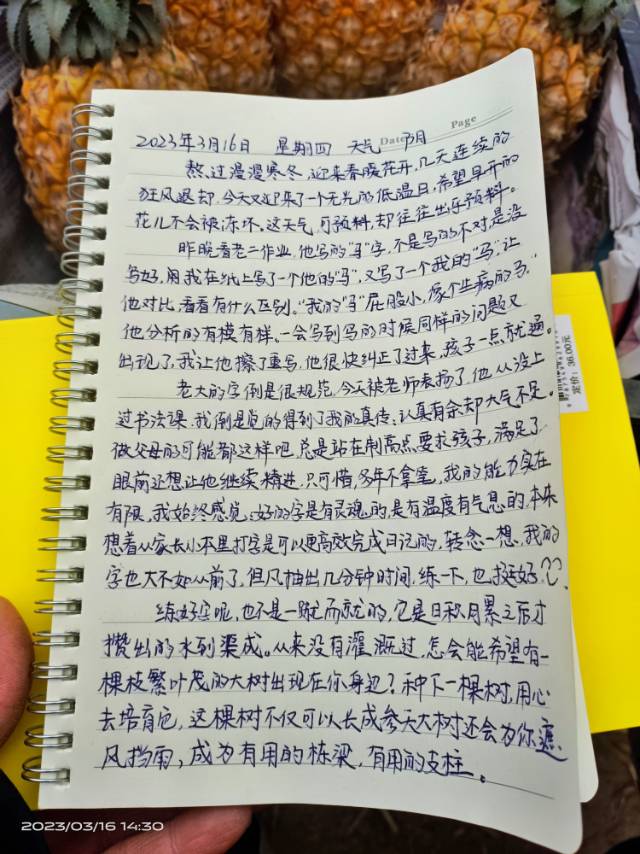 Date
Page
2023年3月16日 星期四 天气 阴
熬过漫漫寒冬,迎来春暖花开,几天连续的
狂风退却,今天又迎来了一个无光的低温日,希望早开的
花儿不会被冻坏。这天气,可预料,却往往出乎预料。
昨晚看老二作业,他写的"马"字,不是写的不对,是没
写好,用我在纸上写了一个他的"马",又写了一个我的"马",让
他对比,看看有什么区别。"我的"马"屁股小,像个生病的马."
他分析的有模有样。一会写到写的时候同样的问题又
出现了,我让他擦了重写,他很快纠正了过来,孩子一点就通。
老大的字倒是很规范,今天被老师表扬了,他从没上
过书法课,我倒是觉的得到了我的真传,认真有余却大气不足。
做父母的可能都这样吧,总是站在制高点要求孩子,满足了
眼前还想让他继续精进,只可惜,多年不拿笔,我的能力实在
有限,我始终感觉,好的字是有灵魂的,是有温度有气息的,本来
想着从家长小本里打字是可以更高效完成日记的,转念一想,我的
字也大不如从前了,但凡抽出几分钟时间,练一下,也挺好
练好字呢,也不是一蹴而就的,它是日积月累之后才
攒出的水到渠成。从来没有灌溉过,怎会能希望有一
棵枝繁叶茂的大树出现在你身边?种下一棵树,用心
去培育它,这棵树不仅可以长成参天大树还会为你遮
风挡雨,成为有用的栋梁,有用的支柱。
定价:36.00元
2023/03/16 14:30